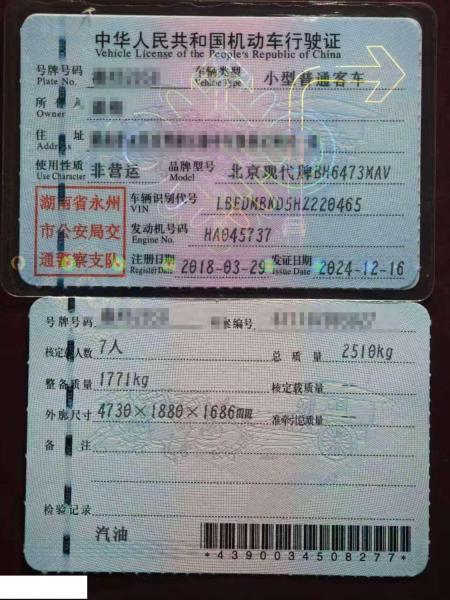 中华人民共和国机动车行驶证
Vehicle License of the People's Republic of China
号牌号码 车辆类型 小型普通客车
Plate No. Vehicle Type
所有人
Owner
住址
Address
使用性质 非营运 品牌型号 北京现代牌BH6473MAV
Use Character Model
湖南省永州 车辆识别代号 LBEDMBKD5HZ220465
VIN
市公安局交 发动机号码 HA045737
Engine No.
通警察支队 注册日期 2018-03-29 发证日期 2024-12-16
Register Date Issue Date
号牌号码 档案编号
核定载人数 7人 总质量 2510kg
整备质量 1771kg 核定载质量 --
外廓尺寸 4730×1880×1686mm 准牵引总质量 --
备注
检验记录
汽油
*4390034508277*